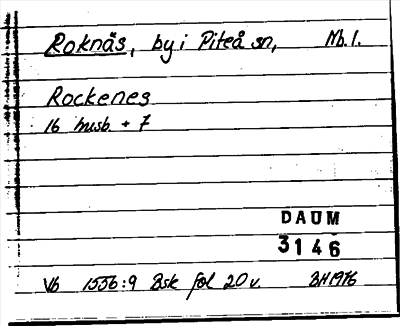 Roknäs, by i Piteå sn, Nb. l.
Rockenes
16 husb. + 7
DAUM
3146
Vb 1556:9 Bsk fol 20 v. BH 1976